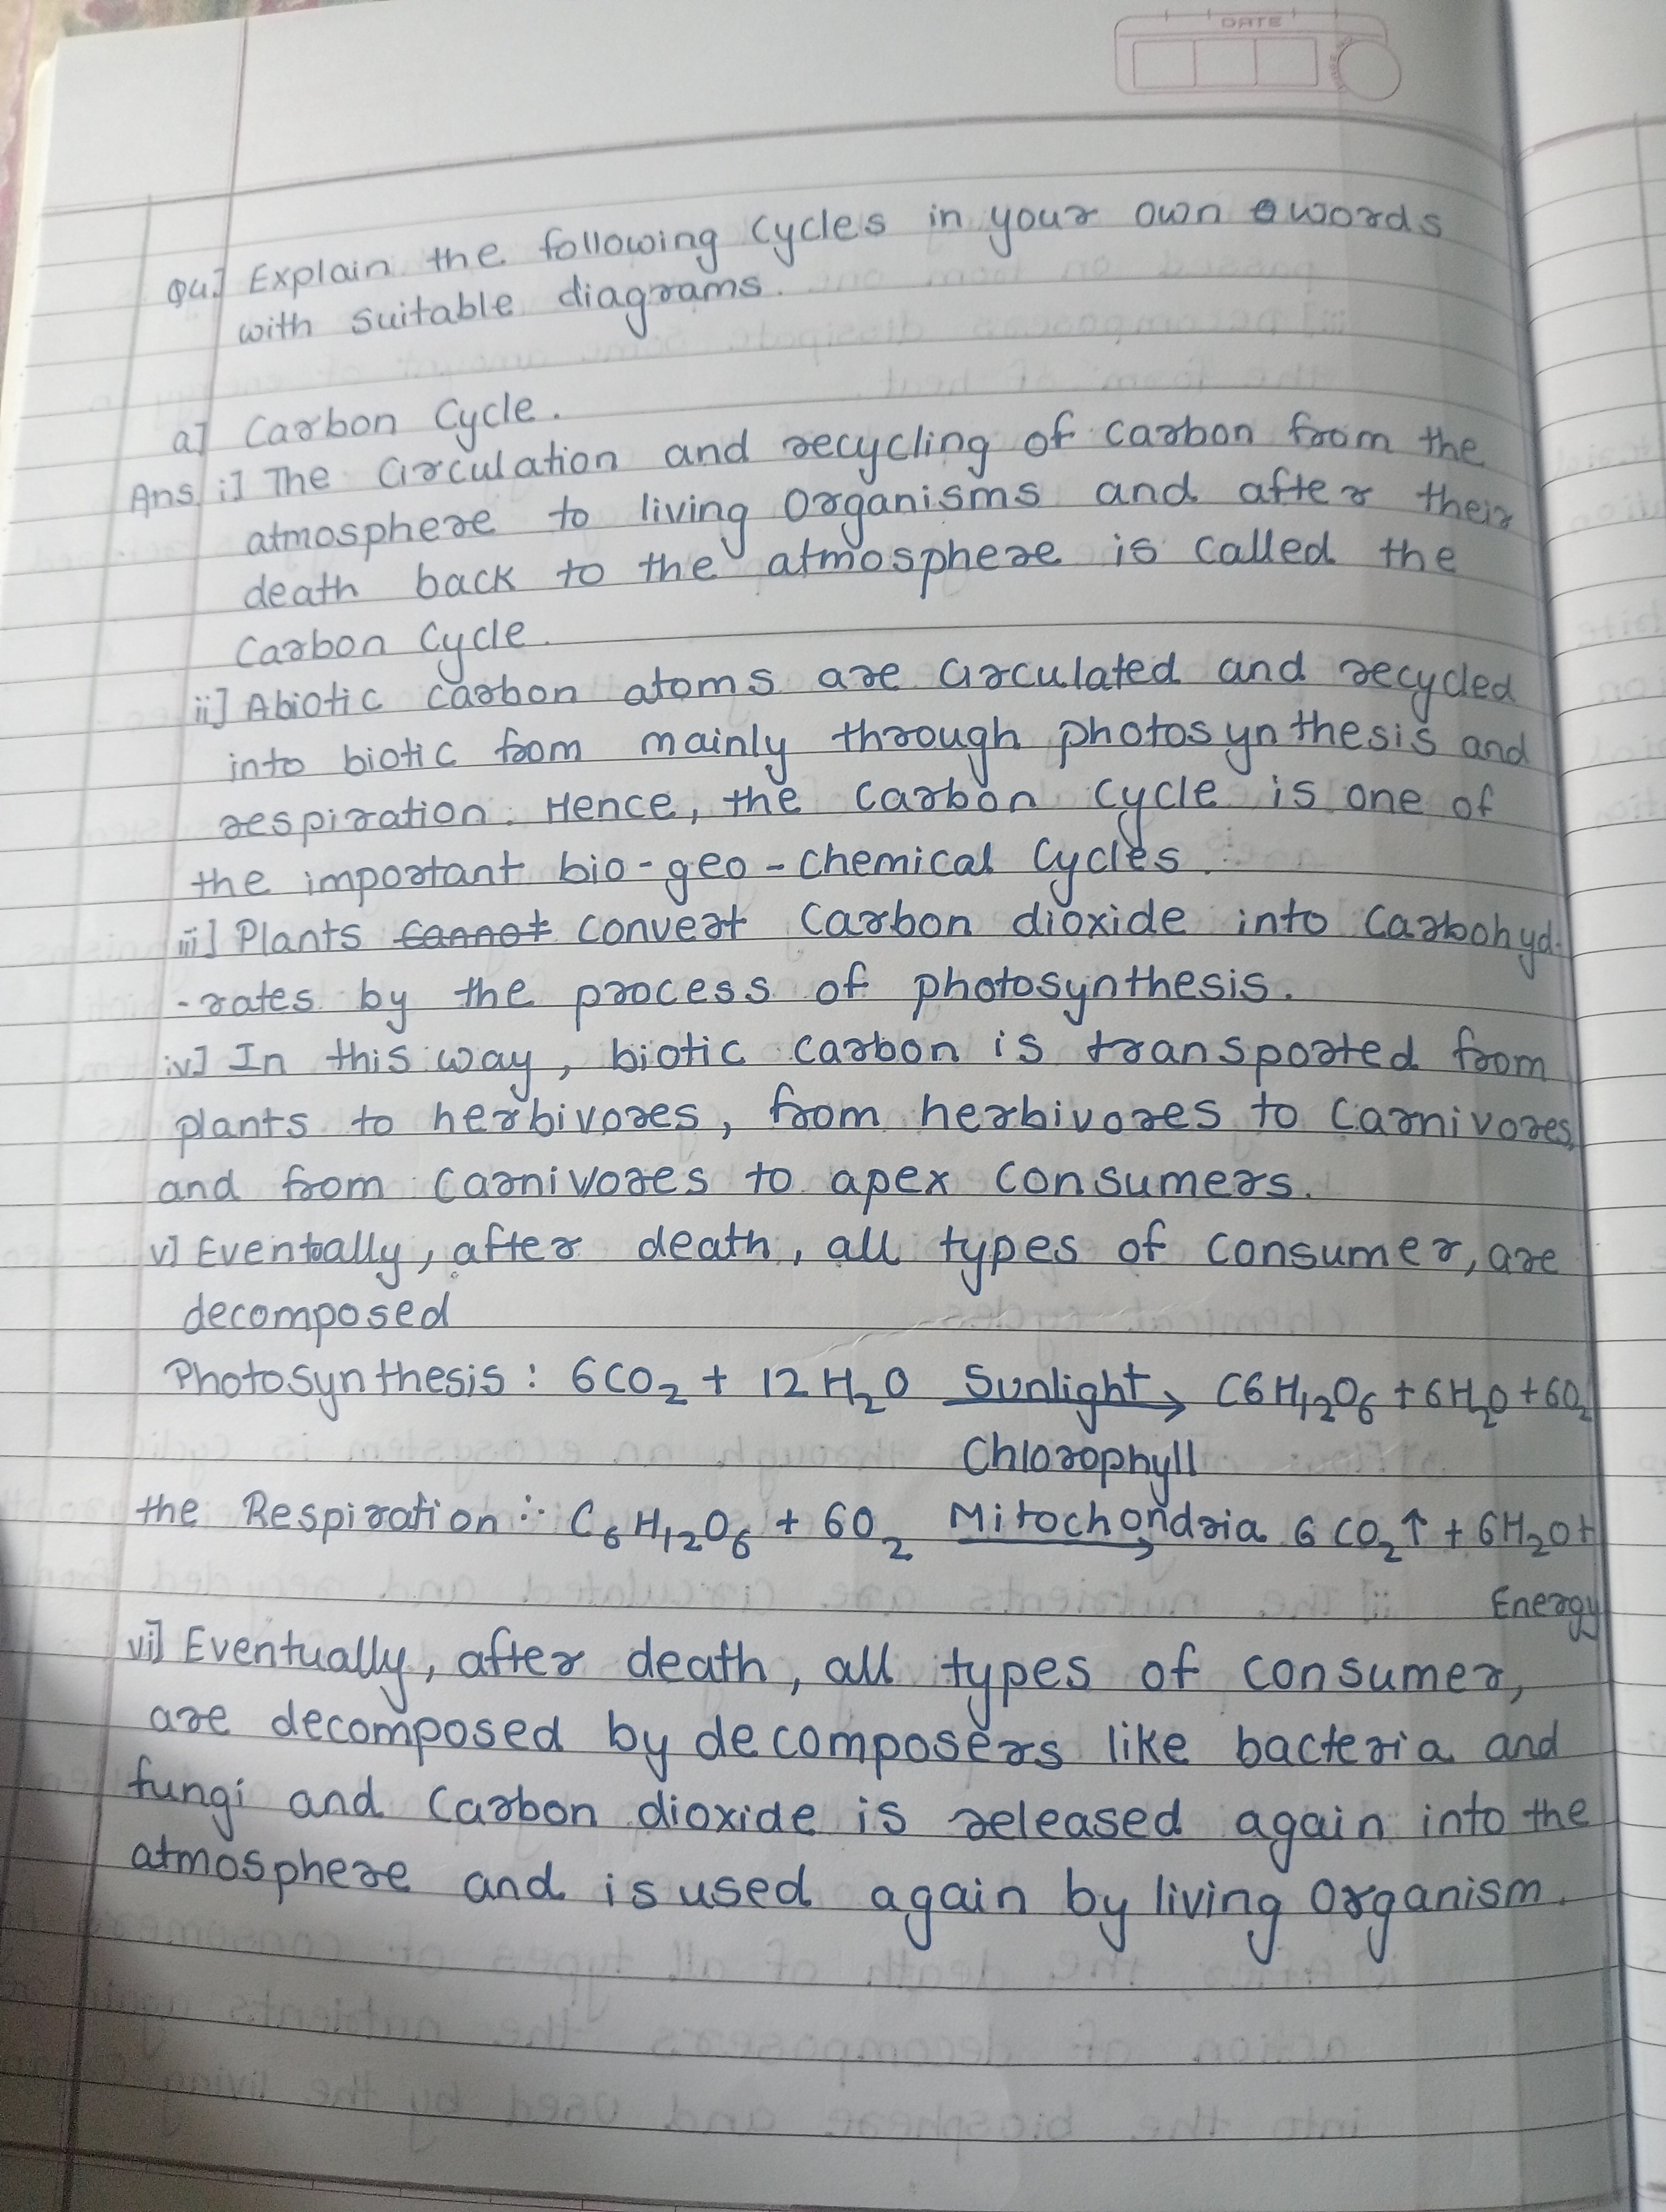 DATE
Q4] Explain the following Cycles in your own words
with suitable diagrams.
a] Carbon Cycle.
Ans i] The Circulation and recycling of carbon from the
atmosphere to living Organisms and after their
death back to the atmosphere is called the
Carbon Cycle.
ii] Abiotic carbon atoms are circulated and recycled
into biotic from mainly through photosynthesis and
respiration. Hence, the carbon cycle is one of
the important bio-geo-chemical Cycles.
iii] Plants cannot convert Carbon dioxide into Carbohyd-
-rates by the process of photosynthesis.
iv] In this way, biotic carbon is transported from
plants to herbivores, from herbivores to Carnivores,
and from Carnivores to apex Consumers.
v] Eventally, after death, all types of Consumer, are
decomposed
Photosynthesis : 6CO₂ + 12H₂O Sunlight → C6H₁₂O₆ + 6H₂O + 6O₂
Chlorophyll
the Respiration : C₆H₁₂O₆ + 6O₂ Mitochondria → 6CO₂↑ + 6H₂O +
Energy
vi] Eventually, after death, all types of consumer,
are decomposed by decomposers like bacteria and
fungi and Carbon dioxide is released again into the
atmosphere and is used again by living Organism.